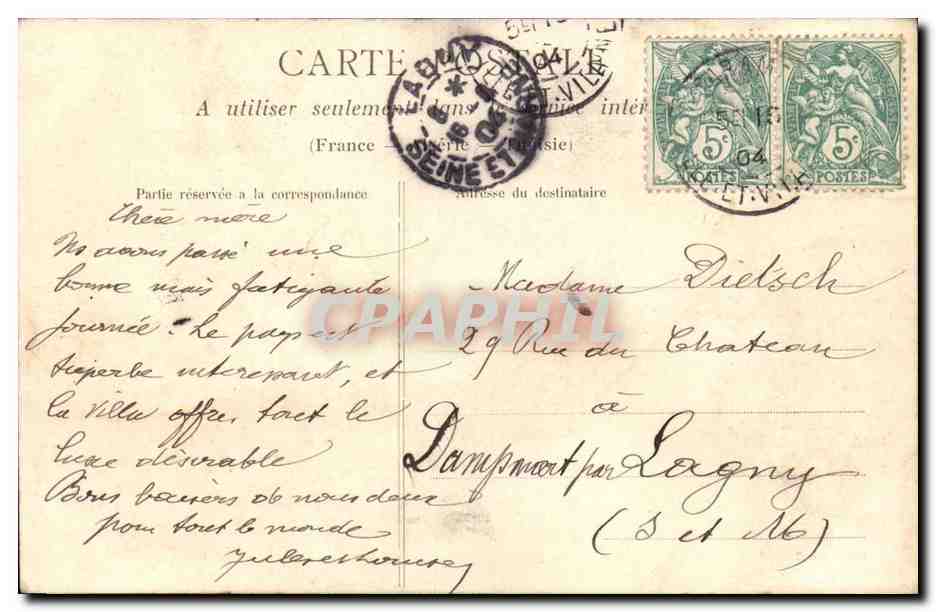 CARTE POSTALE
A utiliser seulement dans le service intér
(France - Algérie - Tunisie)
LAGNY
6
16
04
SEINE ET
04
ET-VIL
5E 15
04
ET-V
5c
POSTES
5c
POSTES
Partie réservée a la correspondance
Adresse du destinataire
Chère mère
Ns avons passé une
bonne mais fatigante
journée. Le pays est
superbe interessant, et
la villa offre tout le
luxe désirable
Bons baisers de nous deux
pour tout le monde
Madame Dietsch
29 Rue du Chateau
à
Dampmart par Lagny
(S et M)
CPAPHIL